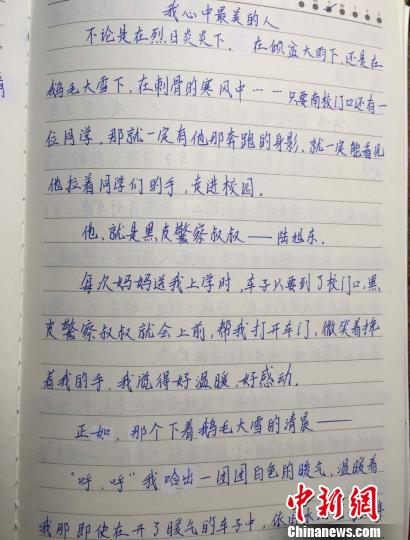 我心中最美的人
不论是在烈日炎炎下、在倾盆大雨下、还是在
鹅毛大雪下，在刺骨的寒风中……只要南校门口还有一
位同学，那就一定有他那奔跑的身影，就一定能看见
他拉着同学们的手，走进校园。
他，就是黑皮警察叔叔——陆祖东。
每次妈妈送我上学时，车子只要到了校门口，黑
皮警察叔叔就会上前，帮我打开车门，微笑着搀
着我的手，我觉得好温暖，好感动。
正如，那个下着鹅毛大雪的清晨——
"呼，呼"我哈出一团团白色的暖气，温暖着
我那即使在开了暖气的车子中，依
中新网